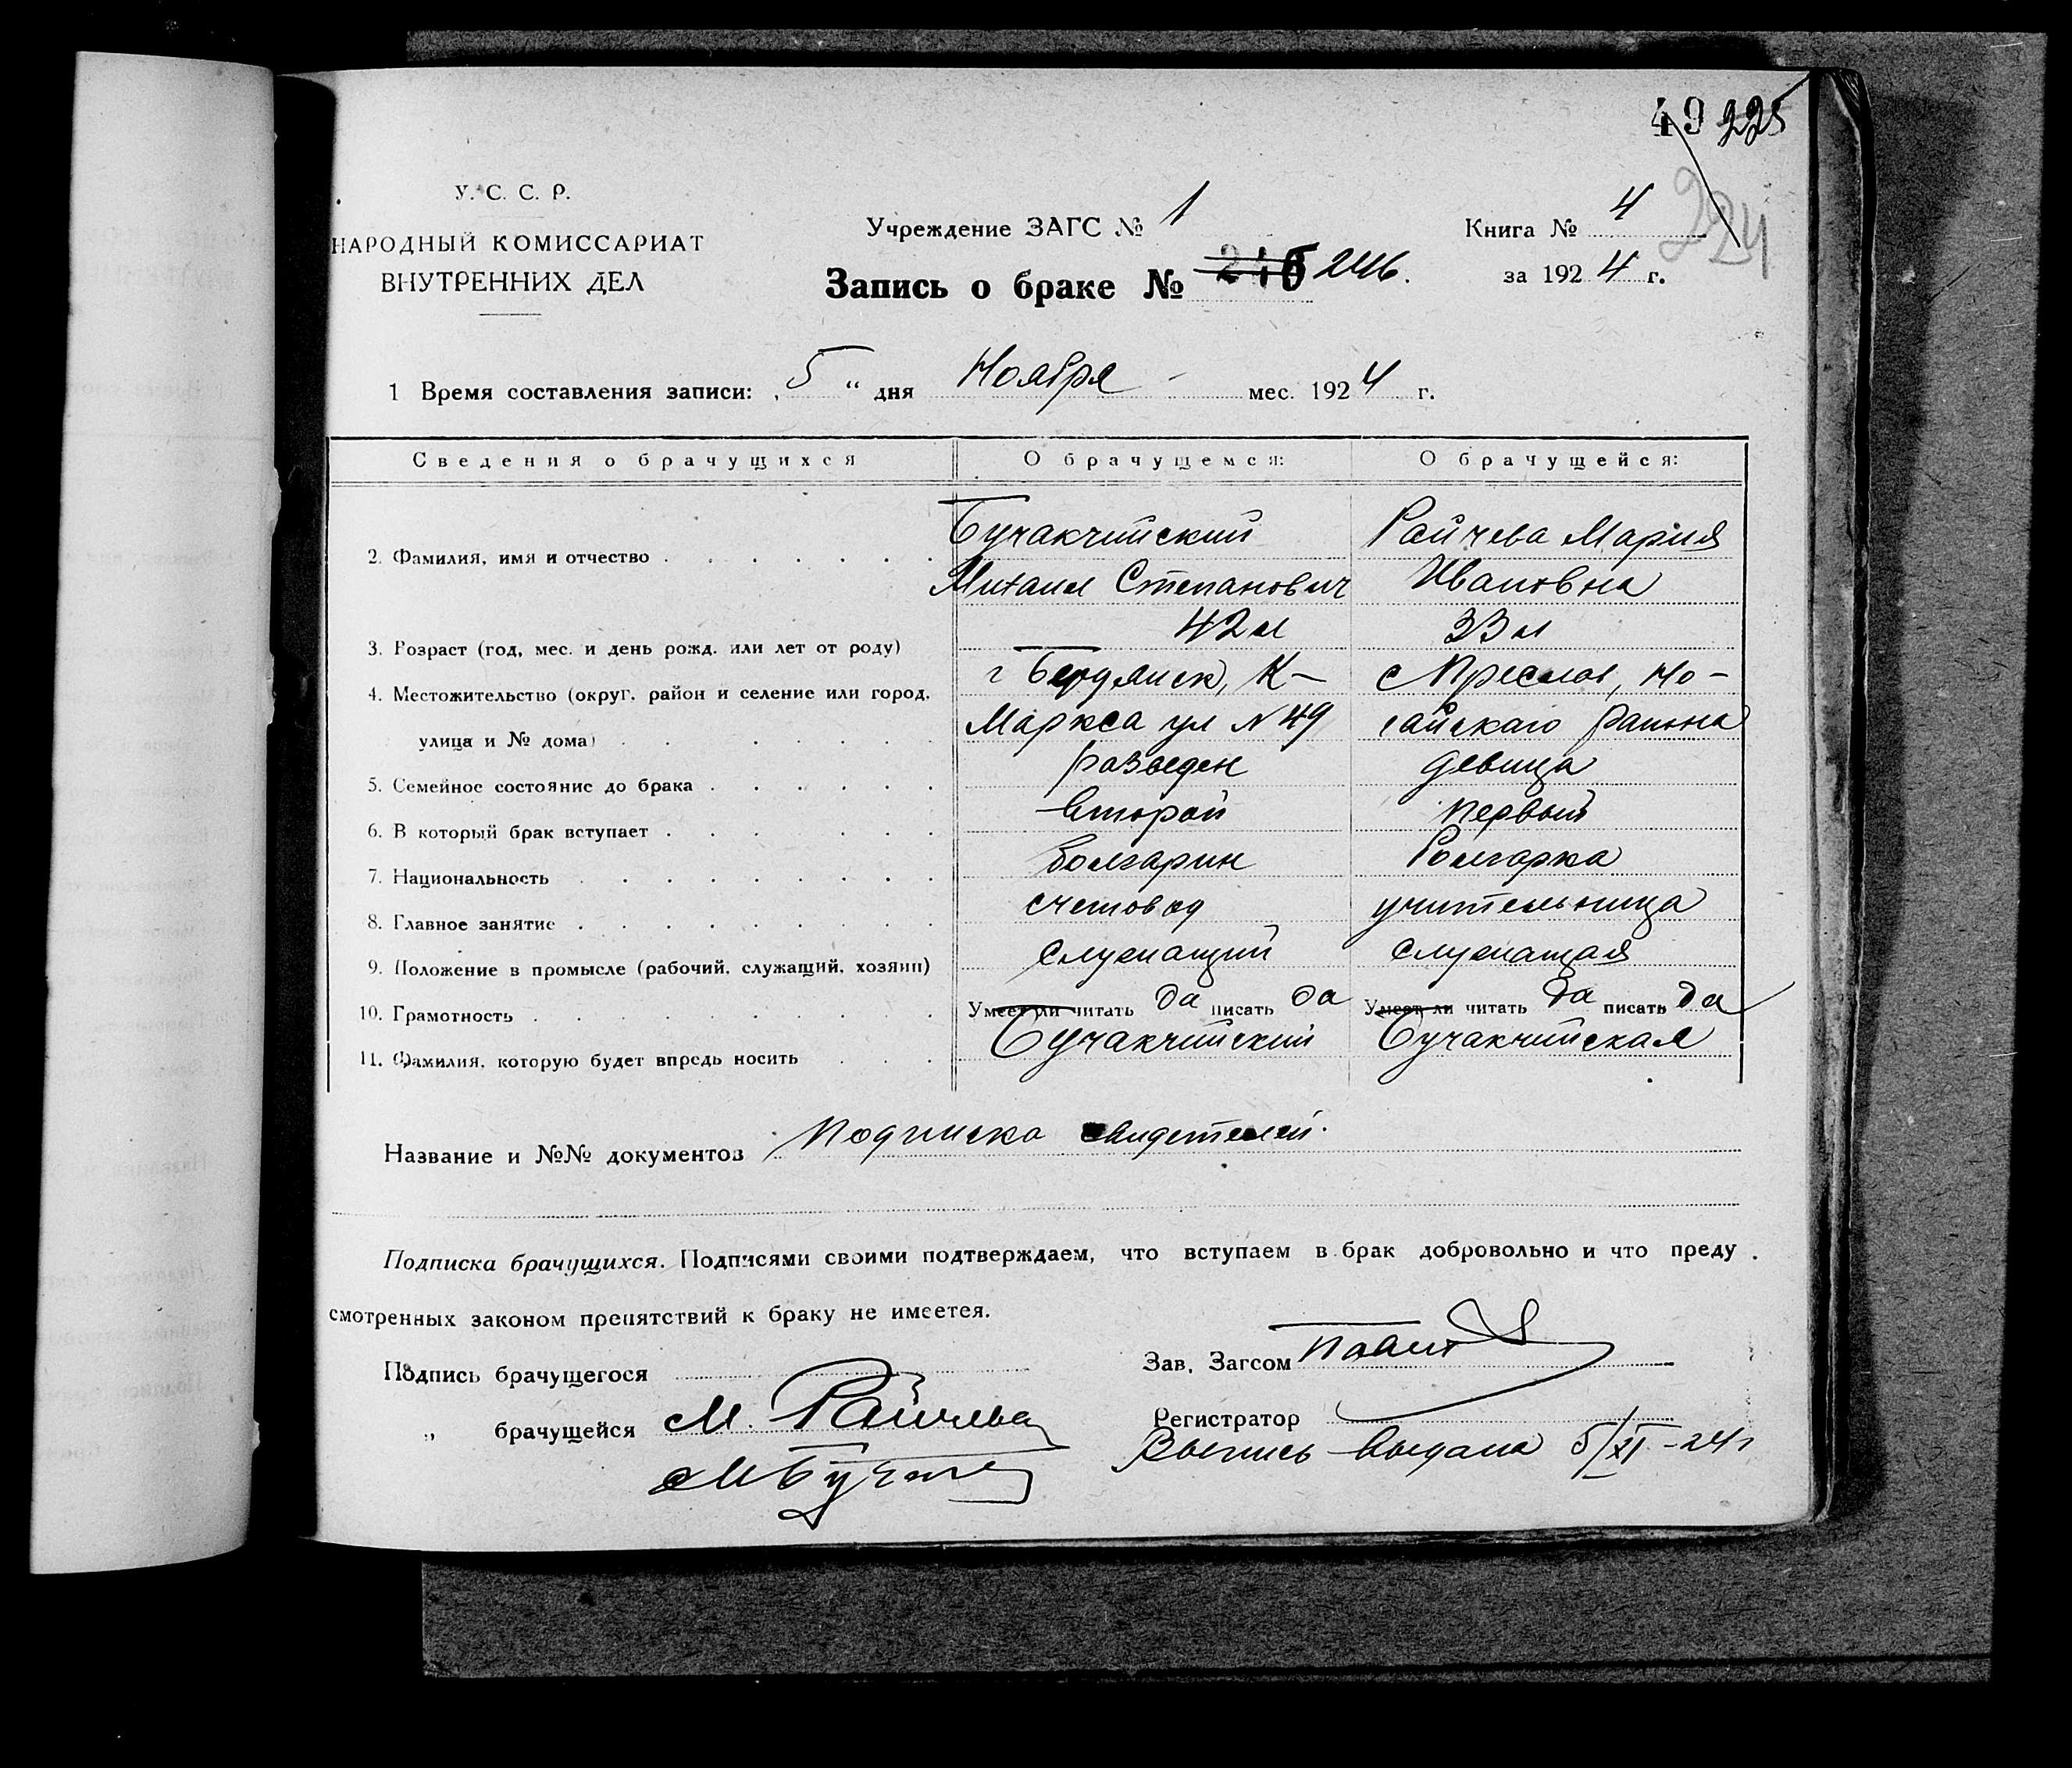 49 225
224
У. С. С. Р.
НАРОДНЫЙ КОМИССАРИАТ
ВНУТРЕННИХ ДЕЛ
Учреждение ЗАГС № 1
Запись о браке № 246 246.
Книга № 4
за 1924 г.
1 Время составления записи: „5“ дня Ноября - мес. 1924 г.
Сведения о брачущихся О брачущемся: О брачущейся:
2. Фамилия, имя и отчество Бучакчийский Райчева Мария
Михаил Степанович Ивановна
3. Возраст (год, мес. и день рожд. или лет от роду) 42 л 33 л
4. Местожительство (округ, район и селение или город, г Бердянск, К- с Преслав, Но-
улица и № дома) Маркса ул № 49 гайскаго района
5. Семейное состояние до брака разведен девица
6. В который брак вступает второй первый
7. Национальность Болгарин Болгарка
8. Главное занятие счетовод учительница
9. Положение в промысле (рабочий, служащий, хозяин) служащий служащая
10. Грамотность Умеет ли читать да писать да Умеет ли читать да писать да
11. Фамилия, которую будет впредь носить Бучакчийский Бучакчийская
Название и №№ документов Подписка свидетелей.
Подписка брачущихся. Подписями своими подтверждаем, что вступаем в брак добровольно и что преду
смотренных законом препятствий к браку не имеется.
Подпись брачущегося
„ брачущейся М. Райчева
Зав. Загсом
Регистратор
Выпись выдана 5/XI-24 г